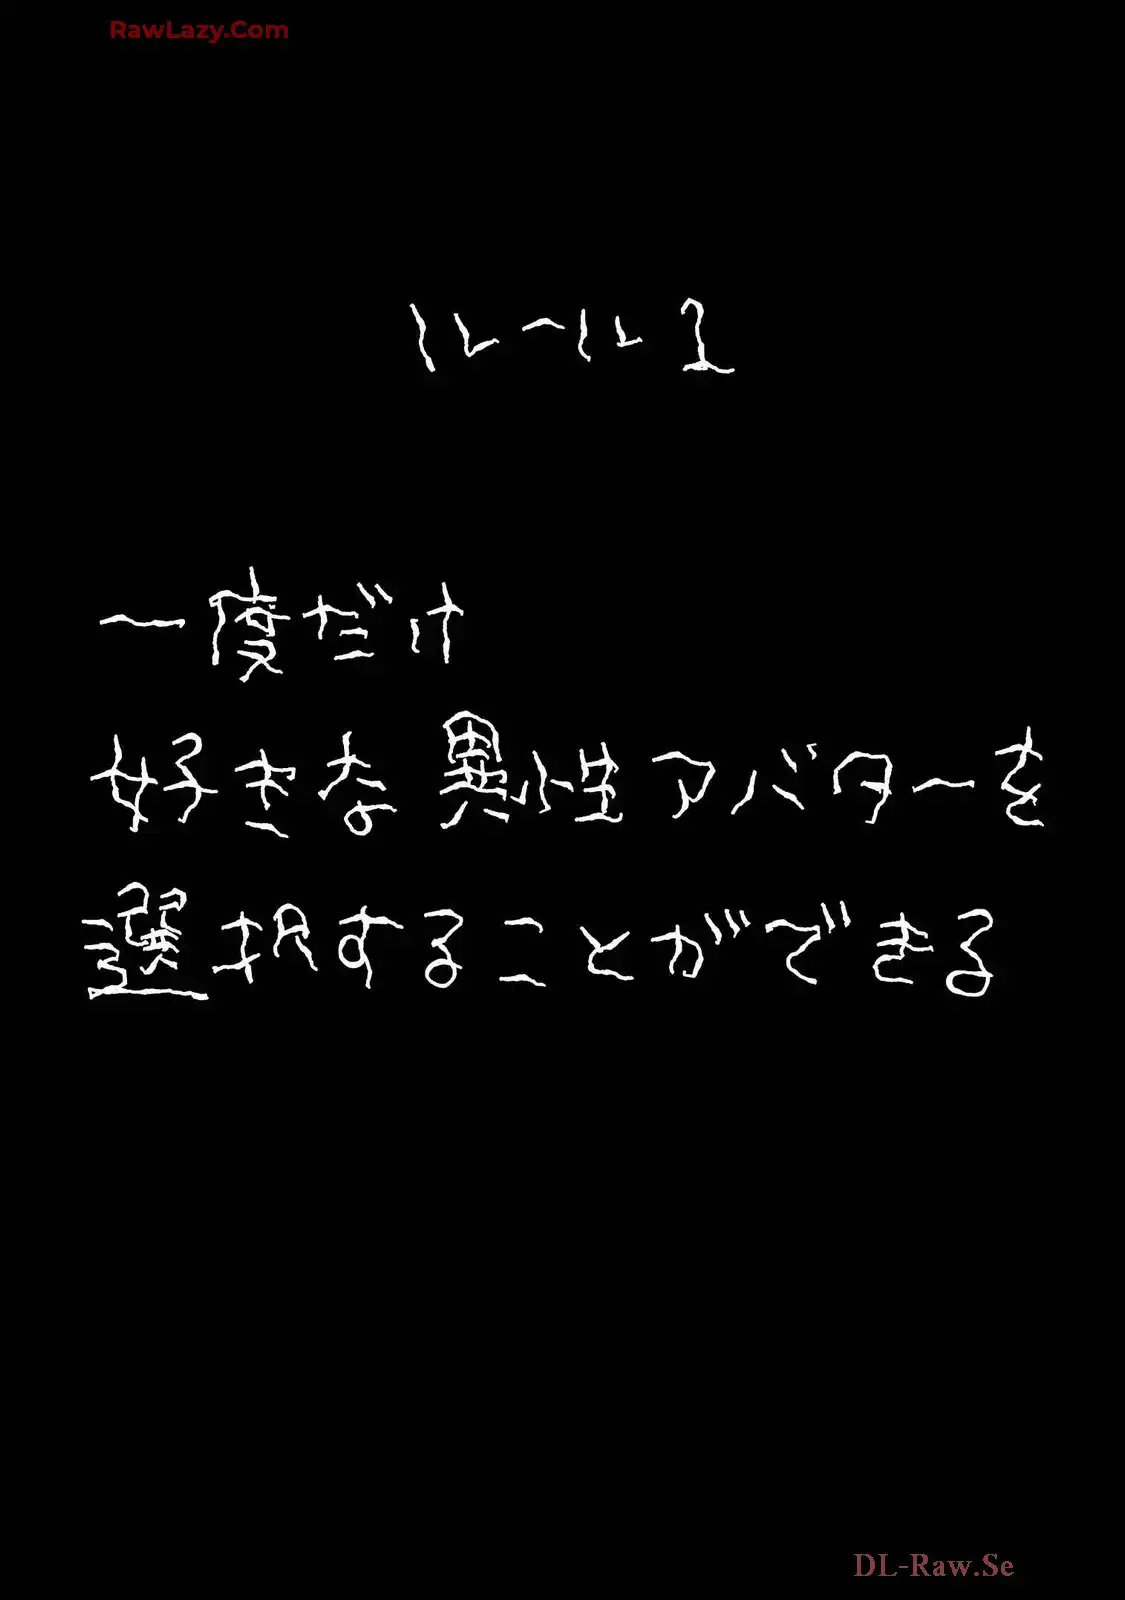 RawLazy.Com
ルール1
一度だけ
好きな異性アバターを
選択することができる
DL-Raw.Se